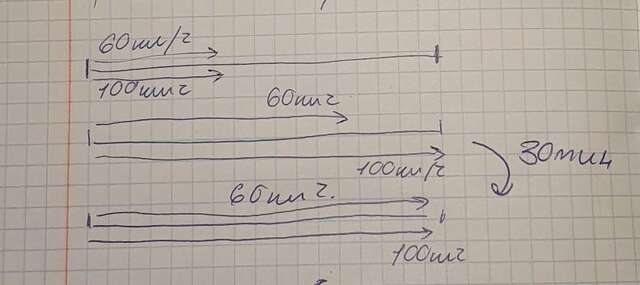 60км/ч
100кмч
60кмч
100км/ч
30мин
60кмч.
100кмч